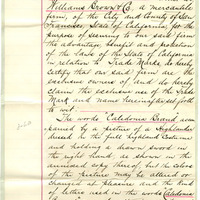 Williams Brown & Co. a mercantile
firm, of the City and County of San
Francisco, State of California, for the
purpose of securing to our said firm
the advantage, benefit and protection
of the laws of the State of California
in relation to Trade Marks, do hereby
certify that our said firm are the
exclusive owners of, and do hereby
claim the exclusive use of the Trade
Mark and name hereinafter set forth
to wit:
The words "Caledonia Brand" accom
panied by a picture of a Highlander
dressed in the full highland costume
and holding a drawn sword in
the right hand, as shown in the
annexed copy thereof but the color
of the picture may be altered or
changed at pleasure and the kind
of letter used in the words Caledonia